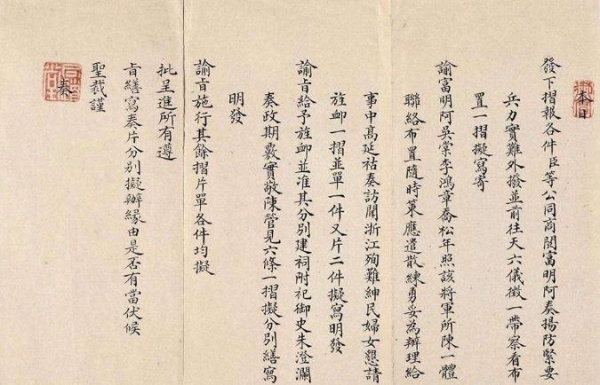 本日
發下摺報各件臣等公同商閱富明阿奏揚防緊要
兵力實難外撥並前往天六儀徵一帶察看布
置一摺擬寫寄
諭富明阿吳棠李鴻章喬松年照該將軍所陳一體
聯絡布置隨時策應遣散練勇妥為辦理給
事中高延祜奏訪聞浙江殉難紳民婦女懇請
旌卹一摺並單一件又片二件擬寫明發
諭旨給予旌卹並准其分別建祠附祀御史朱澄瀾
奏政期覈實敬陳管見六條一摺擬分別繕寫
明發
諭旨施行其餘摺片單各件均擬
批呈進所有遵
旨繕寫奏片分別擬辦緣由是否有當伏候
聖裁謹
奏